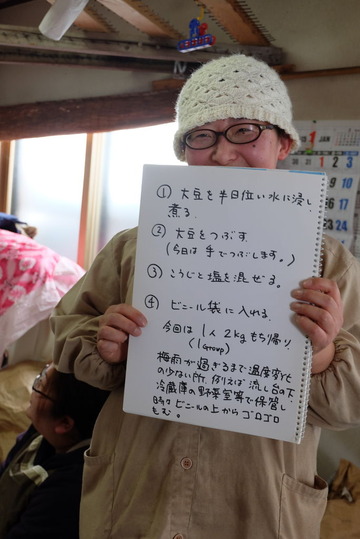 ① 大豆を半日位い水に浸し、
煮る。
② 大豆をつぶす。
(今日は手でつぶします。)
③ こうじと塩を混ぜる。
④ ビニール袋に入れる。
今回は 1人 2kg もち帰り
(1Group)
梅雨が過ぎるまで温度変化
の少ない所、例えば 流し台の下
冷蔵庫の野菜室等で保管し
時々ビニールの上からゴロゴロ
もむ。
1 JAN